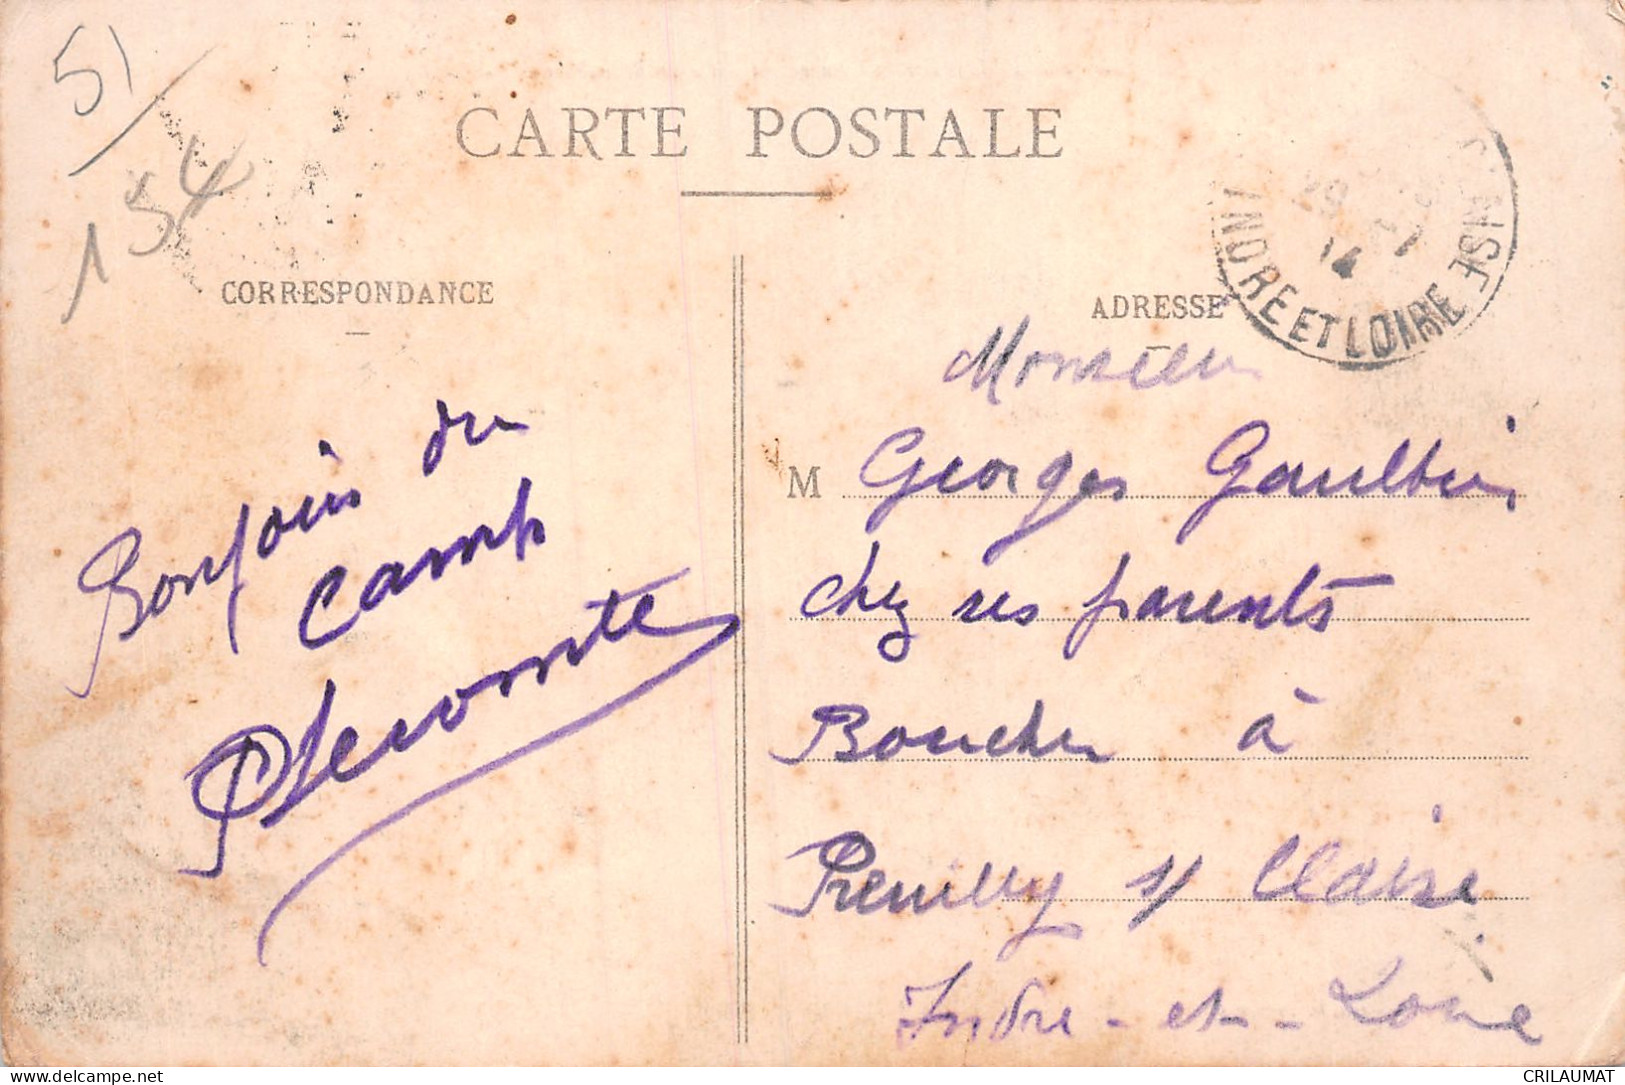 51
154
CARTE POSTALE
CORRESPONDANCE
Bonjour du
camp
Lecomte
ADRESSE
29
14
INDRE ET LOIRE
Monsieur
M Georges Gaultier
chez ses parents
Boucher à
Preuilly s/ Claise
Indre-et-Loire
CRILAUMAT